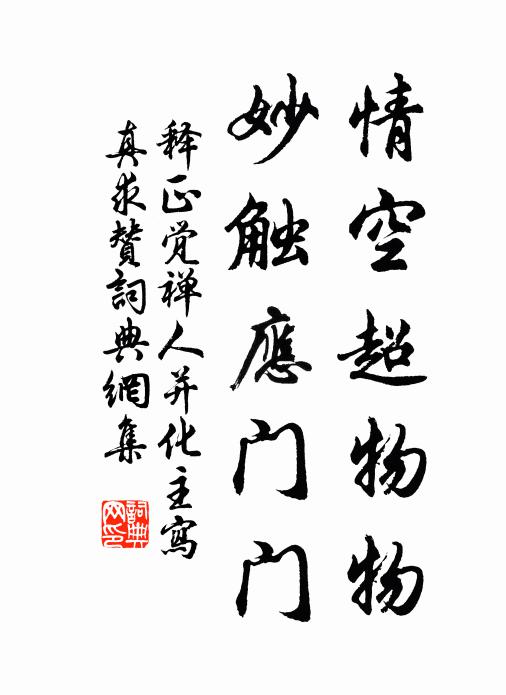 情空超物物
妙触應门门
释正觉禅人并化主寫
真求贊詞典網集
詞典网印